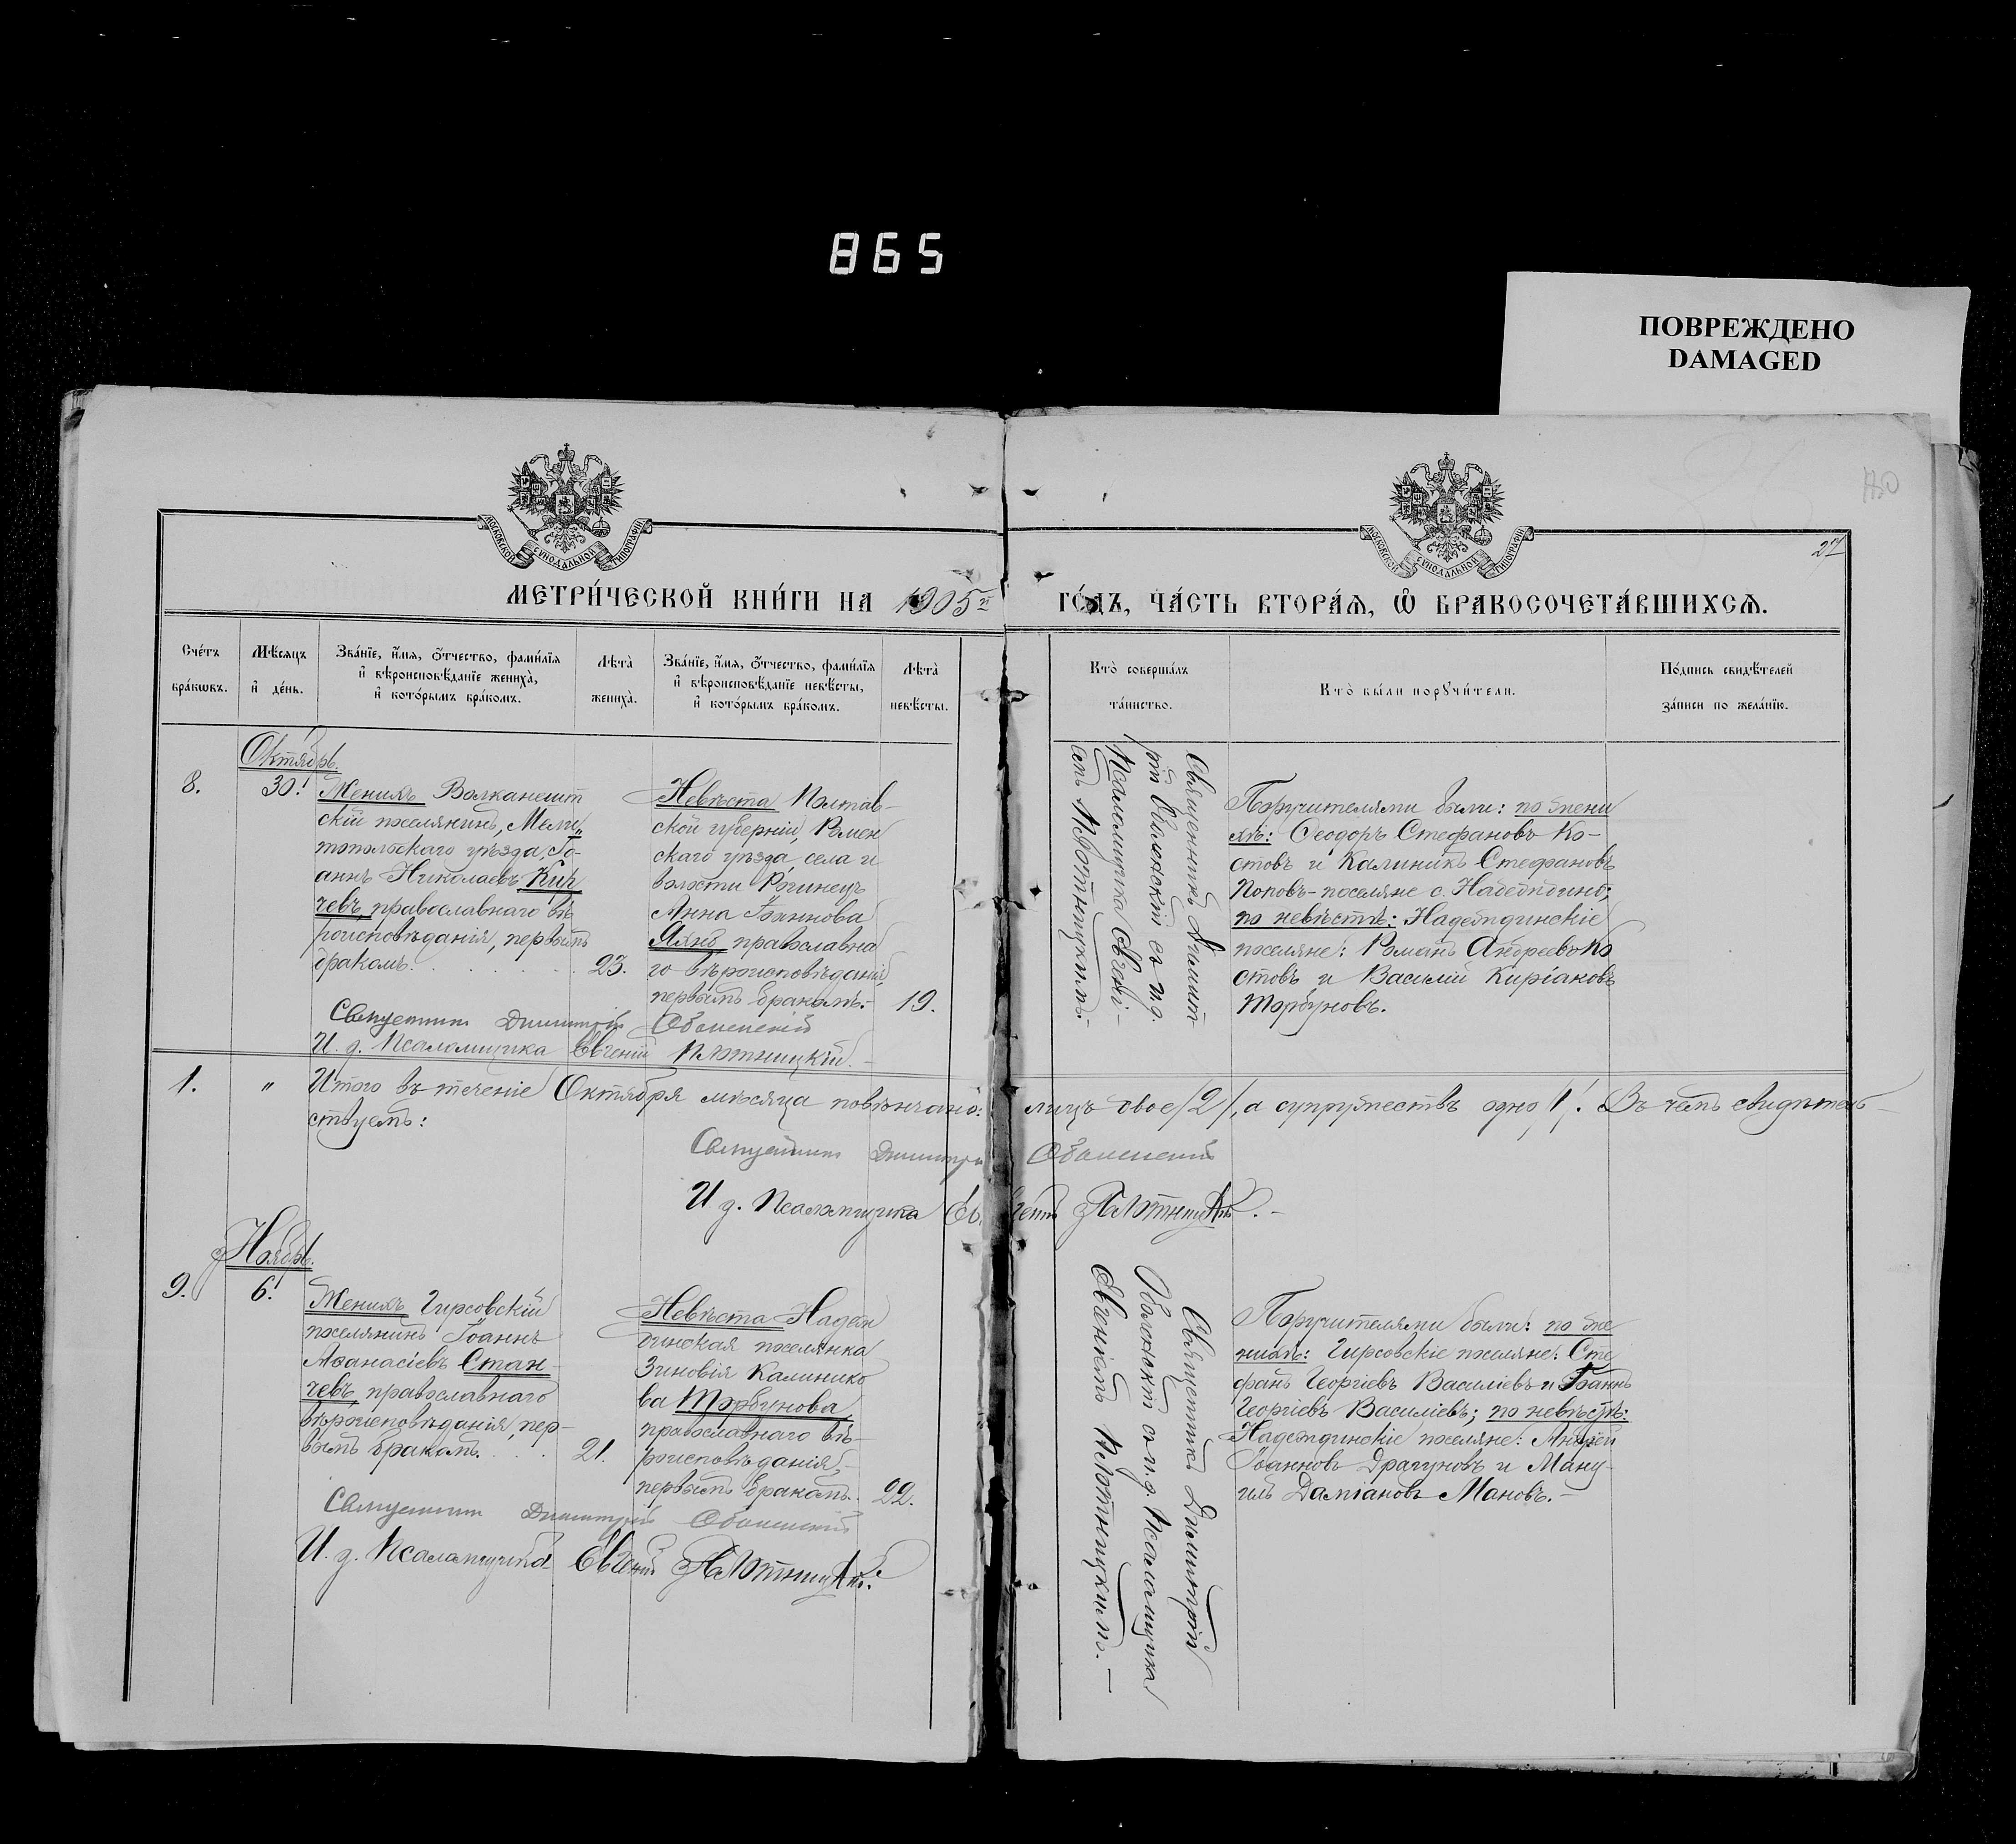 865
ПОВРЕЖДЕНО
DAMAGED
МОСКОВСКОЙ СУНОДАЛЬНОЙ ТИПОГРАФІИ
МОСКОВСКОЙ СУНОДАЛЬНОЙ ТИПОГРАФІИ
27
МЕТРИ́ЧЕСКОЙ КНИ́ГИ НА 1905 го́дъ, ча́сть втора́ѧ, ѽ бракосочета́вшихсѧ.
Сче́тъ
бра́кѡвъ.
Мѣ́сяцъ
и҆ де́нь.
Зва́нїе, и҆́мя, ѻ҆́тчество, фами́лїя
и҆ вѣроисповѣ́данїе жениха̀,
и҆ кото́рымъ бра́комъ.
Лѣта̀
жениха̀.
Зва́нїе, и҆́мя, ѻ҆́тчество, фами́лїя
и҆ вѣроисповѣ́данїе невѣ́сты,
и҆ кото́рымъ бра́комъ.
Лѣта̀
невѣ́сты.
Кто̀ соверша́лъ
та́инство.
Кто̀ бы́ли порꙋчи́тели.
По́дпись свидѣ́телей
за́писи по жела́нїю.
Октябрь.
8.
30.
Женихъ Волканешт
скій поселянинъ, Мели„
топольскаго уѣзда, Іо-
аннъ Николаевъ Кир
чевъ, православнаго вѣ
роисповѣданія, первымъ
бракомъ.
23.
Невѣста Полтав-
ской губерніи, Ромен
скаго уѣзда, села и
волости Рогинецъ
Анна Іоаннова
православна
го вѣроисповѣданія,
первымъ бракомъ.-
19.
Священникъ Димит
рій Оболенскій съ и. д.
Псаломщика Евгені-
емъ Плотницкимъ.-
Поручителями были: по жени
хѣ: Ѳеодоръ Стефановъ Ко-
стовъ и Калиникъ Стефановъ
Поповъ - поселяне с. Надеждино;
по невѣстѣ: Надеждинскіе
поселяне: Романъ Андреевъ Ко
стовъ и Василій Киріаковъ
Торбуновъ.
Священникъ Димитрій Оболенскій
И. д. Псаломщика Евгеній Плотницкій.-
1.
„
Итого въ теченіе Октября мѣсяца повѣнчано: лицъ двое /2/, а супружествъ одно /1/. Въ чемъ свидѣтель-
ствуемъ:
Священникъ Димитрій Оболенскій
И. д. Псаломщика Евгеній Плотницкій.-
Ноябрь.
9.
6.
Женихъ Чирсовскій
поселянинъ Іоаннъ
Аѳанасіевъ Стан-
чевъ, православнаго
вѣроисповѣданія, пер-
вымъ бракомъ.
21.
Невѣста Надеж
динская поселянка
Зиновія Калинико
ва Торбунова,
православнаго вѣ-
роисповѣданія,
первымъ бракомъ.
22.
Священникъ Димитрій
Оболенскій съ и. д. Псаломщика
Евгеніемъ Плотницкимъ.-
Поручителями были: по же
нихѣ: Чирсовскіе поселяне: Сте
фанъ Георгіевъ Василіевъ и Іоаннъ
Георгіевъ Василіевъ; по невѣстѣ:
Надеждинскіе поселяне: Андрей
Іоанновъ Драгуновъ и Ману-
илъ Даміановъ Мановъ.-
Священникъ Димитрій Оболенскій
И. д. Псаломщика Евгеній Плотницкій.